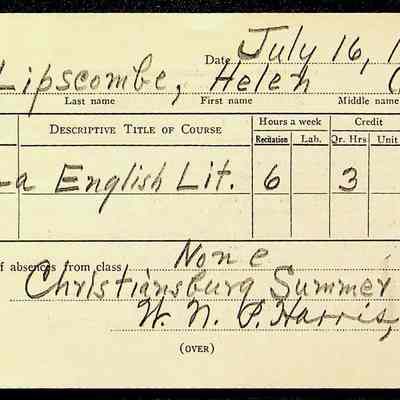 Date July 16, 1
Lipscombe, Helen
Last name First name Middle name
Hours a week Credit
Descriptive Title of Course Recitation Lab. Qr. Hrs Unit
-a English Lit. 6 3
of absences from class None
Christiansburg Summer
W. N. P. Harris,
(OVER)